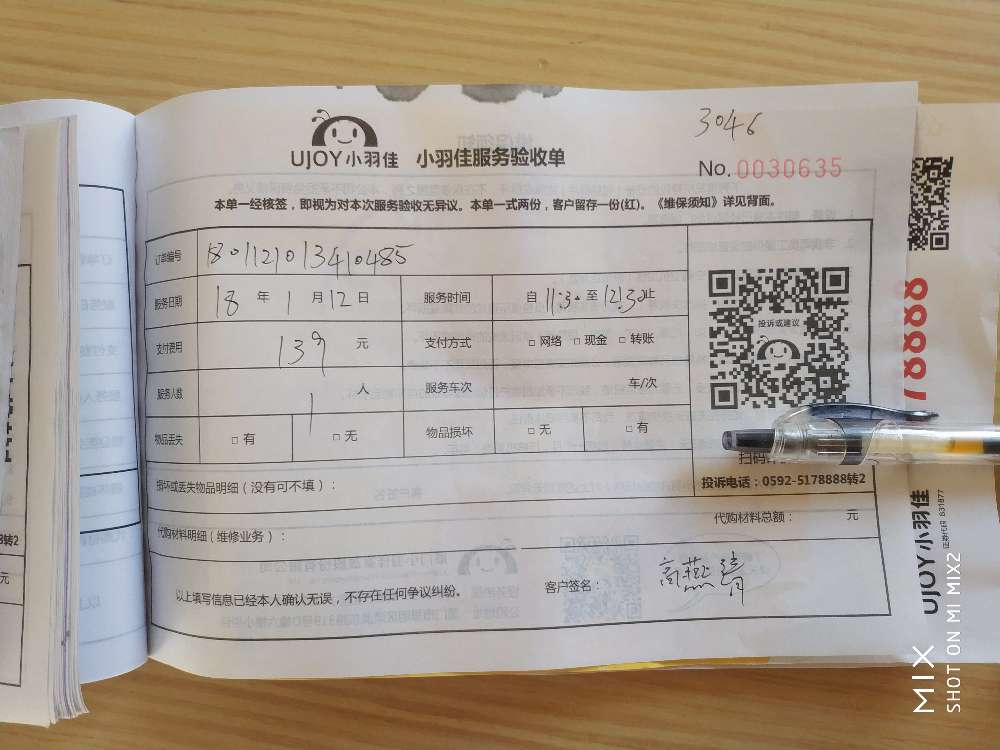 3046
UJOY小羽佳 小羽佳服务验收单
No. 0030635
本单一经核签，即视为对本次服务验收无异议。本单一式两份，客户留存一份(红)。《维保须知》详见背面。
订单编号 1801121013410485
服务日期 18 年 1 月 12 日 服务时间 自 11:30 至 12:30 止
支付费用 139 元 支付方式 □ 网络 □ 现金 □ 转账
服务人数 1 人 服务车次 车/次
物品丢失 □ 有 □ 无 物品损坏 □ 无 □ 有
投诉或建议
扫码
投诉电话：0592-5178888转2
损坏或丢失物品明细（没有可不填）：
代购材料明细（维修业务）： 代购材料总额： 元
以上填写信息已经本人确认无误，不存在任何争议纠纷。 客户签名： 高燕清
78888
UJOY小羽佳
证券代码 831877
转2
元
MIX
SHOT ON MI MIX2